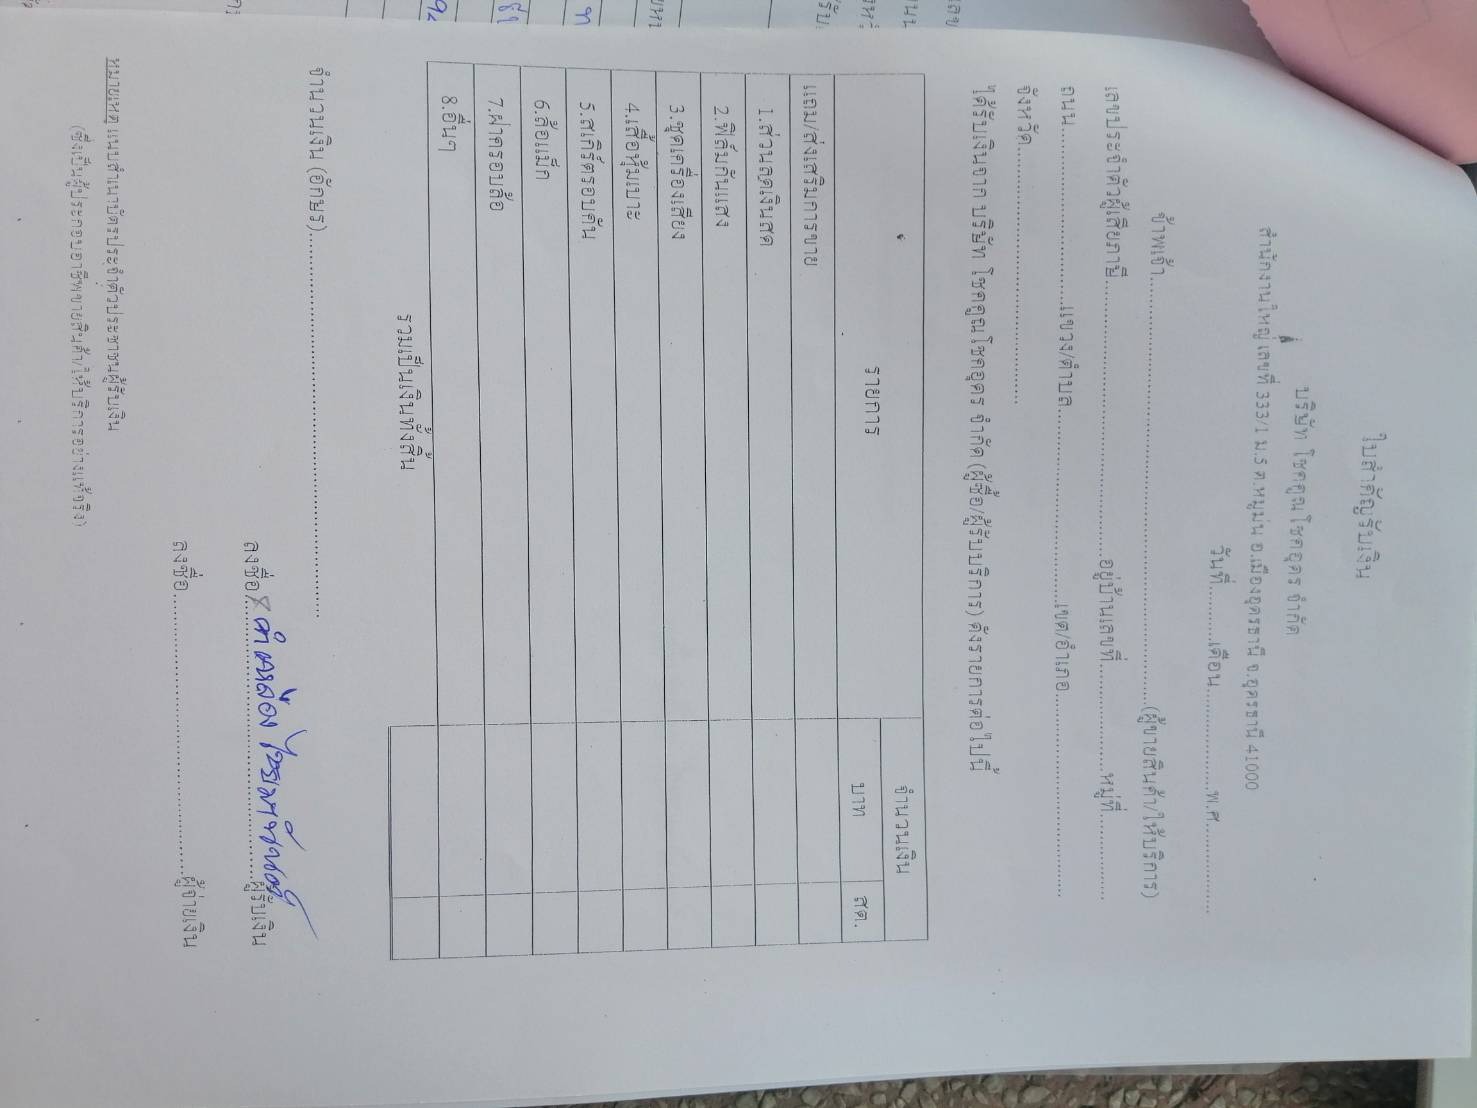 ใบสำคัญรับเงิน
บริษัท โชคคูณโชคอุดร จำกัด
สำนักงานใหญ่ เลขที่ 333/1 ม.5 ต.หมูม่น อ.เมืองอุดรธานี จ.อุดรธานี 41000
วันที่............เดือน....................พ.ศ..................
ข้าพเจ้า..........................................................................(ผู้ขายสินค้า/ให้บริการ)
เลขประจำตัวผู้เสียภาษี..................................................อยู่บ้านเลขที่....................หมู่ที่..................
ถนน................................แขวง/ตำบล...................................เขต/อำเภอ........................................
จังหวัด..............................................
ได้รับเงินจาก บริษัท โชคคูณโชคอุดร จำกัด (ผู้ซื้อ/ผู้รับบริการ) ดังรายการต่อไปนี้
รายการ จำนวนเงิน
บาท สต.
แถม/ส่งเสริมการขาย
1.ส่วนลดเงินสด
2.ฟิล์มกันแสง
3.ชุดเครื่องเสียง
4.เสื้อหุ้มเบาะ
5.สเกิร์ตรอบคัน
6.ล้อแม็ก
7.ฝาครอบล้อ
8.อื่นๆ
รวมเป็นเงินทั้งสิ้น
จำนวนเงิน (อักษร)....................................................................
ลงชื่อ..................................................ผู้รับเงิน
ลงชื่อ..................................................ผู้จ่ายเงิน
หมายเหตุ แนบสำเนาบัตรประจำตัวประชาชนผู้รับเงิน
(ซึ่งเป็นผู้ประกอบอาชีพขายสินค้า/ให้บริการอย่างแท้จริง)